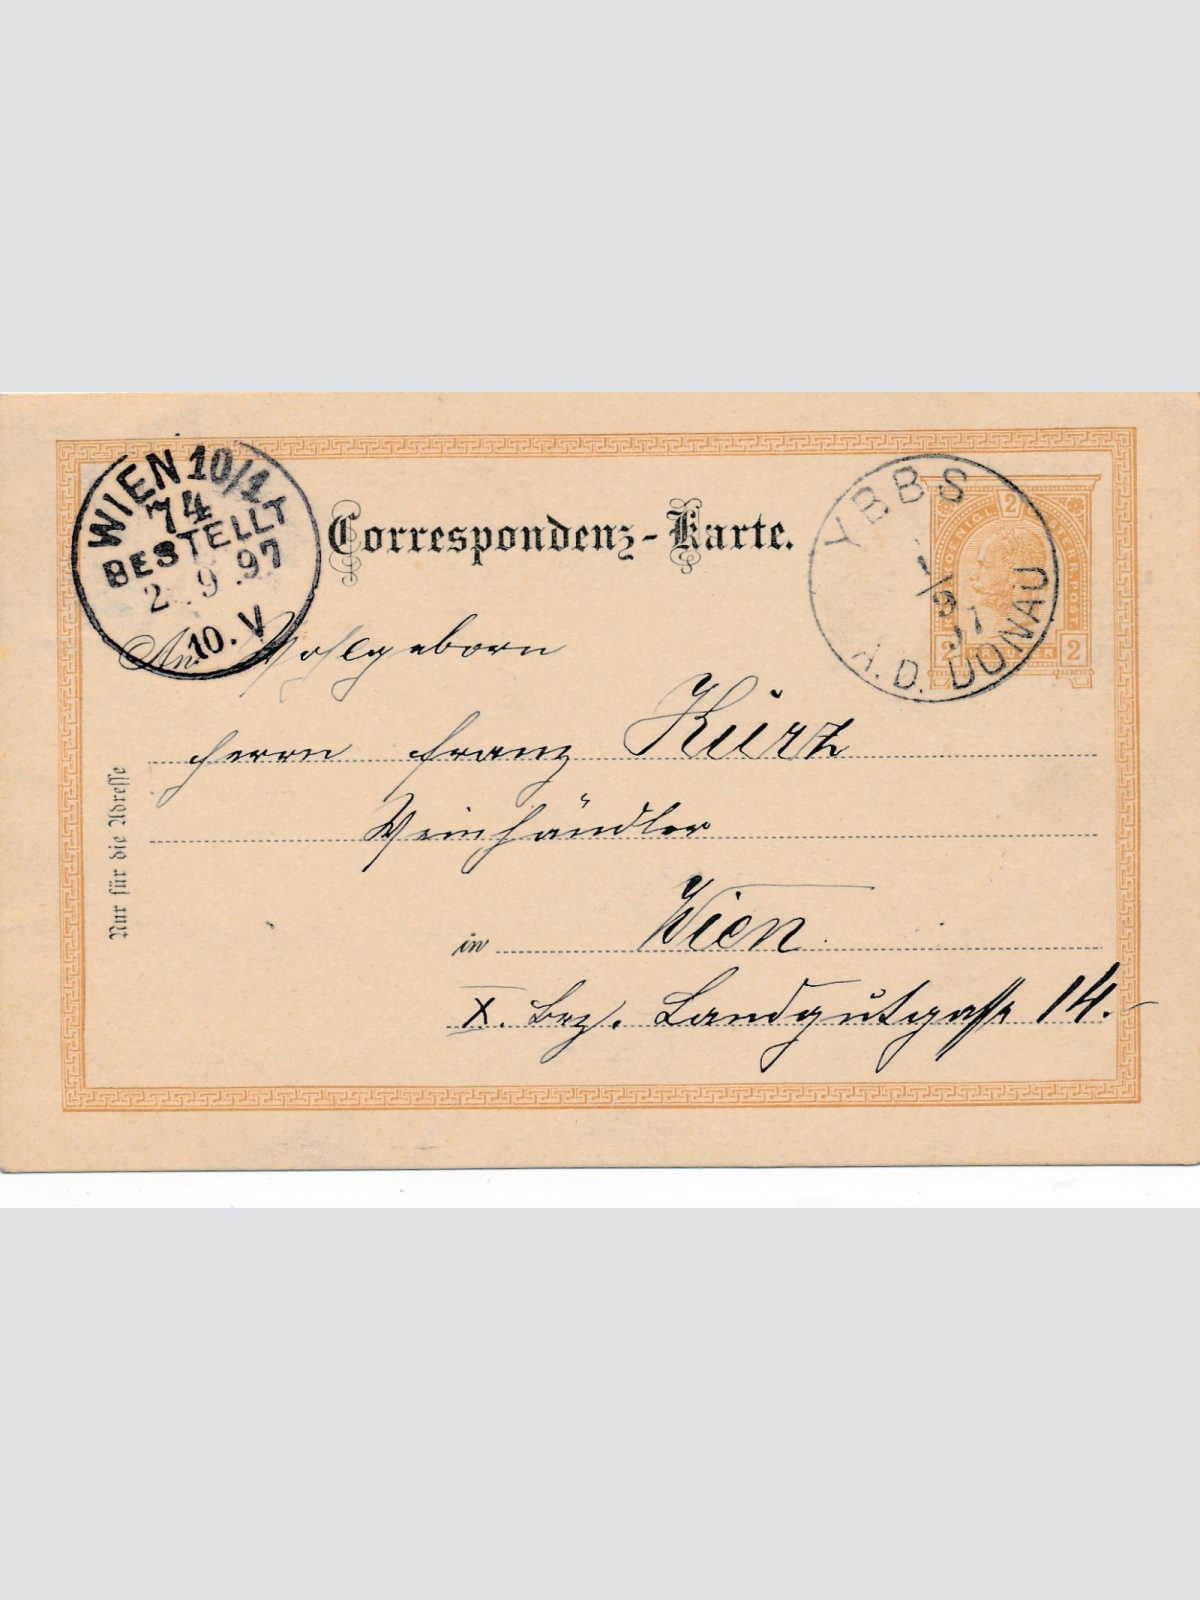 WIEN 10/1
74
BESTELLT
2. 9. 97
10. V
Correspondenz-Karte.
YBBS
1/9
97
A.D. DONAU
2
2 2
An Wohlgeborn
Herrn Franz Kürz
Weinhändler
in Wien
X. Bez. Landgutgasse 14.-
Nur für die Adresse